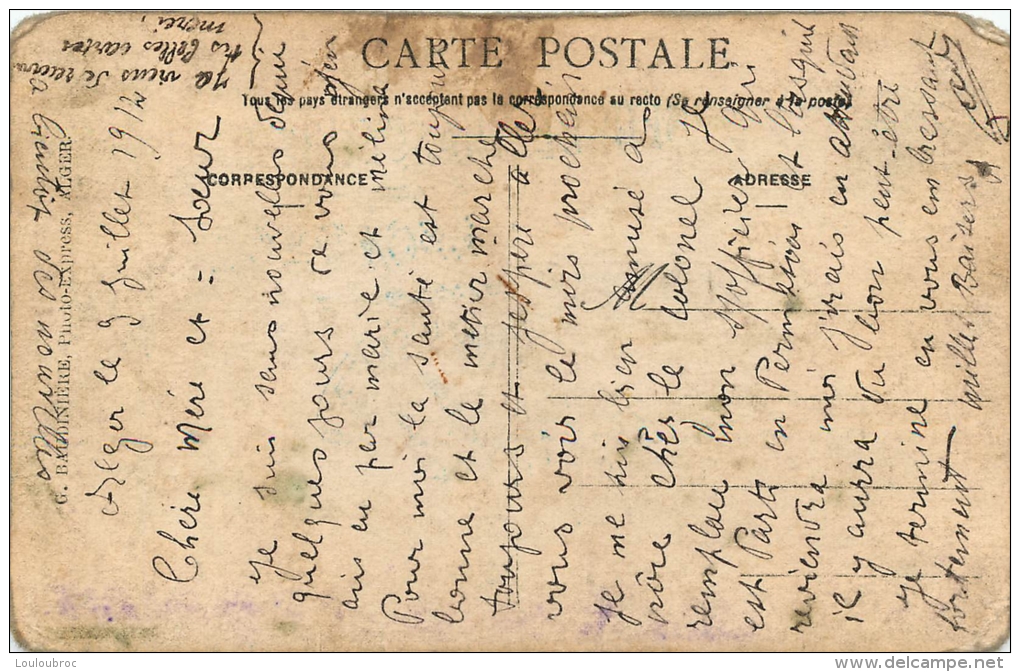 CARTE POSTALE
Tous les pays étrangers n'acceptent pas la correspondance au recto (Se renseigner à la poste)
CORRESPONDANCE
ADRESSE
G. BALDINIÈRE, PHOTO-EXPRESS, ALGER
Alger le 9 Juillet 1912
Chère Mère et = Soeur
Je suis sans nouvelles depuis
quelques jours de vous
ais eu par marie et milina
Pour moi la santé est toujour
bonne et le metier marche
toujours et jespere allé
vous voir le mois prochein
Je me suis bien amusé a
chès le colonel Je
remplace mon soffisié qui
est Parti en Permission et lorsque
reviendra moi j'irais en
il y aurra du bon peut-être
Je termine en vous embressant
fortement mille Baisers
a bientôt des nouvelles
Ja viens de recevoir
tis belles cartes
merci
Louloubroc
www.delcampe.net